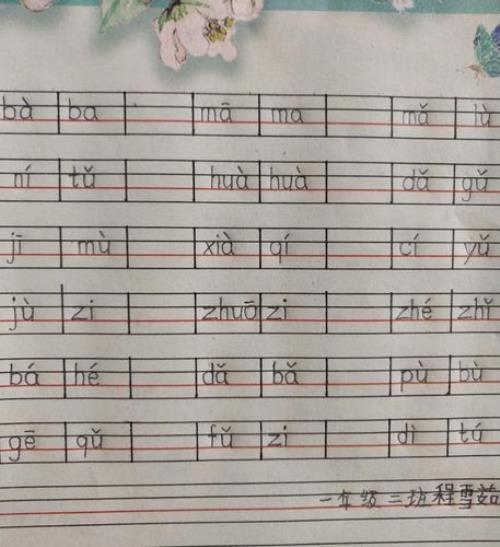 bà ba mā ma mǎ lù
ní tǔ huà huà dǎ gǔ
jī mù xià qí cí yǔ
jù zi zhuō zi zhé zhǐ
bá hé dǎ bǎ pù bù
gē qǔ fǔ zi dì tú
一年级二班程雪茹